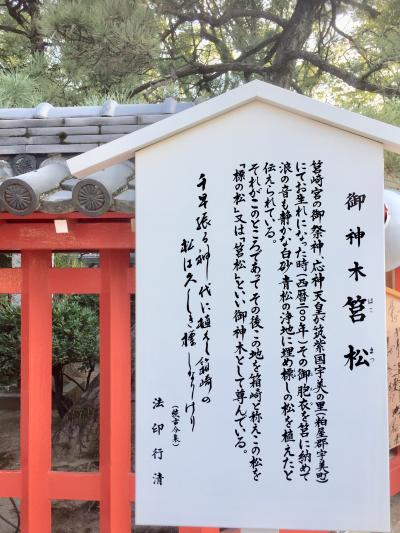 御神木筥松
はこまつ
筥崎宮の御祭神、応神天皇が筑紫国宇美の里(粕屋郡宇美町)
にてお生れになった時(西暦二〇〇年)その御胞衣を筥に納めて
浪の音も静かな白砂青松の浄地に埋め標しの松を植えたと
伝えられている。
それがこのところであって その後この地を箱崎と称えこの松を
「標の松」又は「筥松」といい御神木として尊んでいる。
千早振る神代に植えし箱崎の
松は久しき標しなりけり
(続古今集)
法印行清